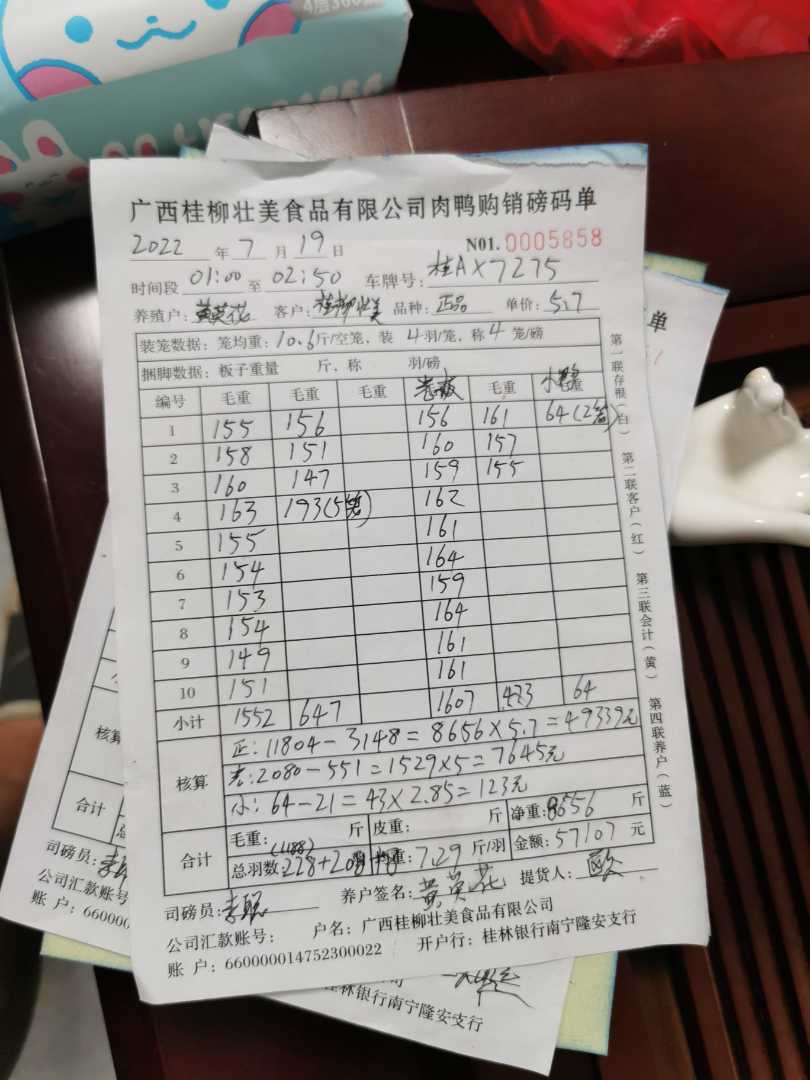 4层300
广西桂柳壮美食品有限公司肉鸭购销磅码单
2022 年 7 月 19 日 N01. 0005858
时间段 01:00 至 02:50 车牌号: 桂AX7275
养殖户: 黄英花 客户: 桂柳壮美 品种: 正品 单价: 5.7
装笼数据: 笼均重: 10.6 斤/空笼, 装 4 羽/笼, 称 4 笼/磅
捆脚数据: 板子重量 斤, 称 羽/磅
编号 毛重 毛重 毛重 毛重
1 155 156 156 161 64(2笼)
2 158 151 160 157
3 160 147 159 155
4 163 193(5笼) 162
5 155 161
6 154 164
7 153 159
8 154 164
9 149 161
10 151 161
小计 1552 647 1607 423 64
核算
正: 11804-3148=8656×5.7=49339元
老: 2080-551=1529×5=7645元
小: 64-21=43×2.85=123元
合计
毛重: 斤 皮重: 斤 净重: 8656 斤
(1188)
总羽数: 228+208 均重: 7.29 斤/羽 金额: 57107 元
司磅员: 养户签名: 黄英花 提货人: 欧
公司汇款账号: 户名: 广西桂柳壮美食品有限公司
账 户: 660000014752300022 开户行: 桂林银行南宁隆安支行
第一联存根(白) 第二联客户(红) 第三联会计(黄) 第四联养户(蓝)
单
核算
合计
司磅员:
公司汇款账号
账 户: 66000
桂林银行南宁隆安支行